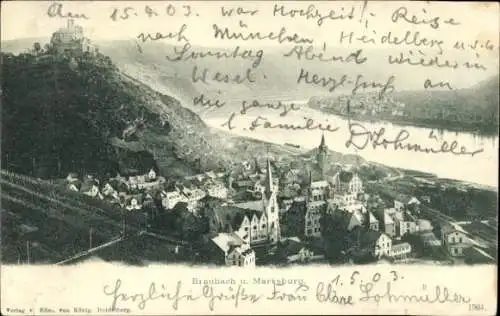 Am 15.5.03. war Hochzeit! Reise
nach München, Heidelberg u.s.f.
Sonntag Abend wieder in
Wesel. Herzl. Gruß an
die ganze
Familie
D. Lohmüller.
Braubach u. Marksburg.
1.5.03.
Herzliche Grüße Frau Cläre Lohmüller
Verlag v. Edm. von König, Heidelberg.
1904.